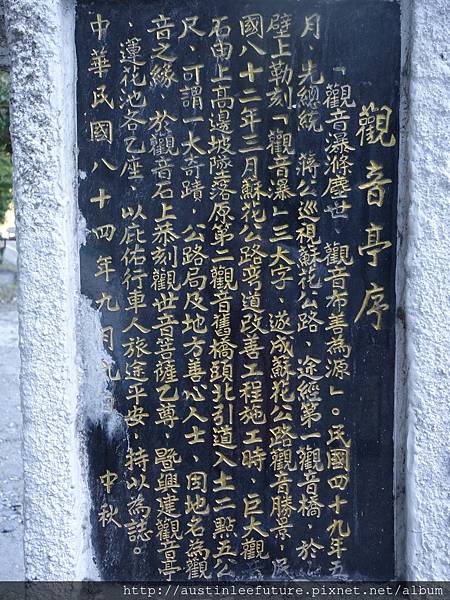 觀音亭序
「觀音瀑滌塵世、觀音布善為源」。民國四十九年五
月、先總統 蔣公巡視蘇花公路、途經第一觀音橋，於
壁上勒刻「觀音瀑」三大字、遂成蘇花公路觀音勝景，民
國八十二年三月蘇花公路彎道改善工程施工時 巨大觀
石由上高邊坡墜落原第二觀音舊橋頭北引道入土二點五公
尺，可謂一大奇蹟，公路局及地方善心人士、因地名為觀
音之緣、於觀音石上恭刻觀世音菩薩乙尊，暨興建觀音亭
、蓮花池各乙座，以庇佑行車人旅途平安，特以為誌。
中華民國八十四年九月九日 中秋
http://austinleefuture.pixnet.net/album